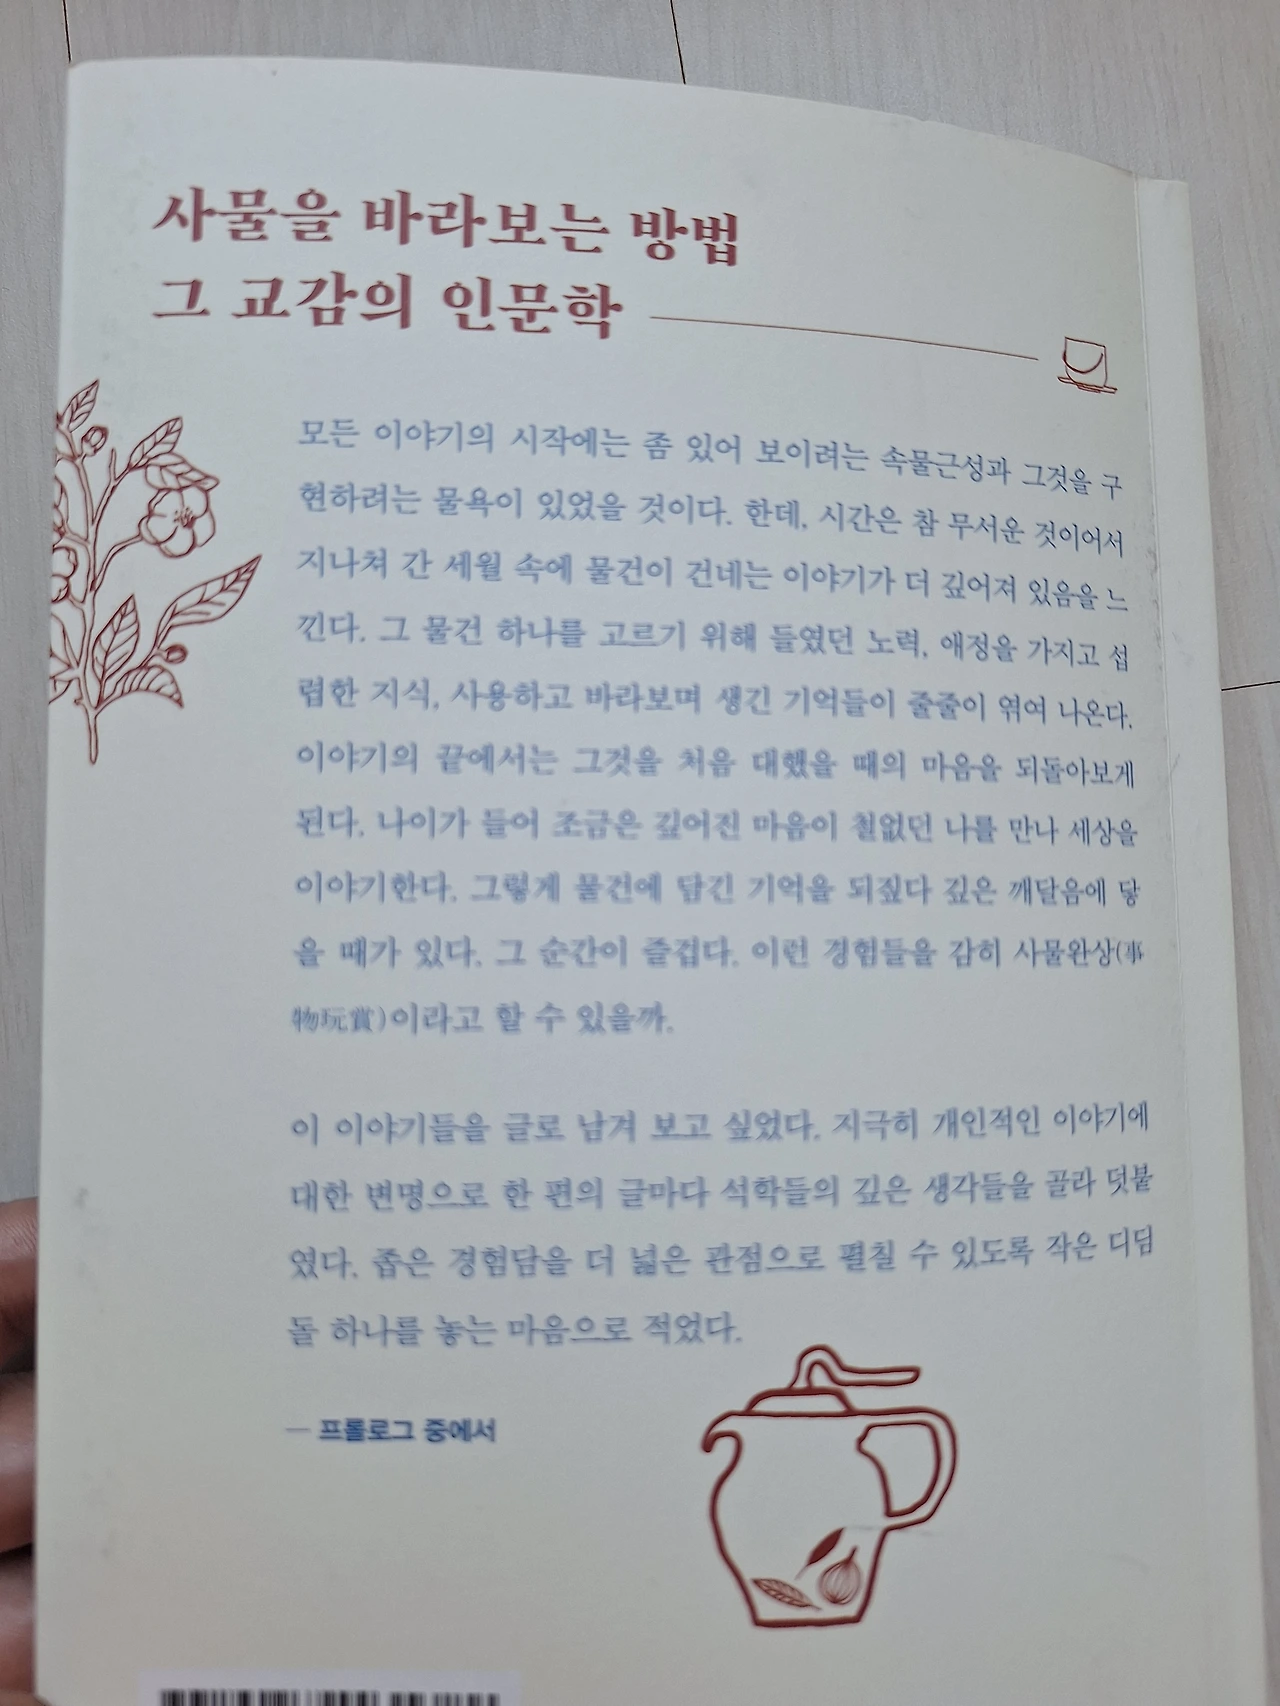 사물을 바라보는 방법
그 교감의 인문학
모든 이야기의 시작에는 좀 있어 보이려는 속물근성과 그것을 구
현하려는 물욕이 있었을 것이다. 한데, 시간은 참 무서운 것이어서
지나쳐 간 세월 속에 물건이 건네는 이야기가 더 깊어져 있음을 느
낀다. 그 물건 하나를 고르기 위해 들였던 노력, 애정을 가지고 섭
렵한 지식, 사용하고 바라보며 생긴 기억들이 줄줄이 엮여 나온다.
이야기의 끝에서는 그것을 처음 대했을 때의 마음을 되돌아보게
된다. 나이가 들어 조금은 깊어진 마음이 철없던 나를 만나 세상을
이야기한다. 그렇게 물건에 담긴 기억을 되짚다 깊은 깨달음에 닿
을 때가 있다. 그 순간이 즐겁다. 이런 경험들을 감히 사물완상(事
物玩賞)이라고 할 수 있을까.
이 이야기들을 글로 남겨 보고 싶었다. 지극히 개인적인 이야기에
대한 변명으로 한 편의 글마다 석학들의 깊은 생각들을 골라 덧붙
였다. 좁은 경험담을 더 넓은 관점으로 펼칠 수 있도록 작은 디딤
돌 하나를 놓는 마음으로 적었다.
— 프롤로그 중에서